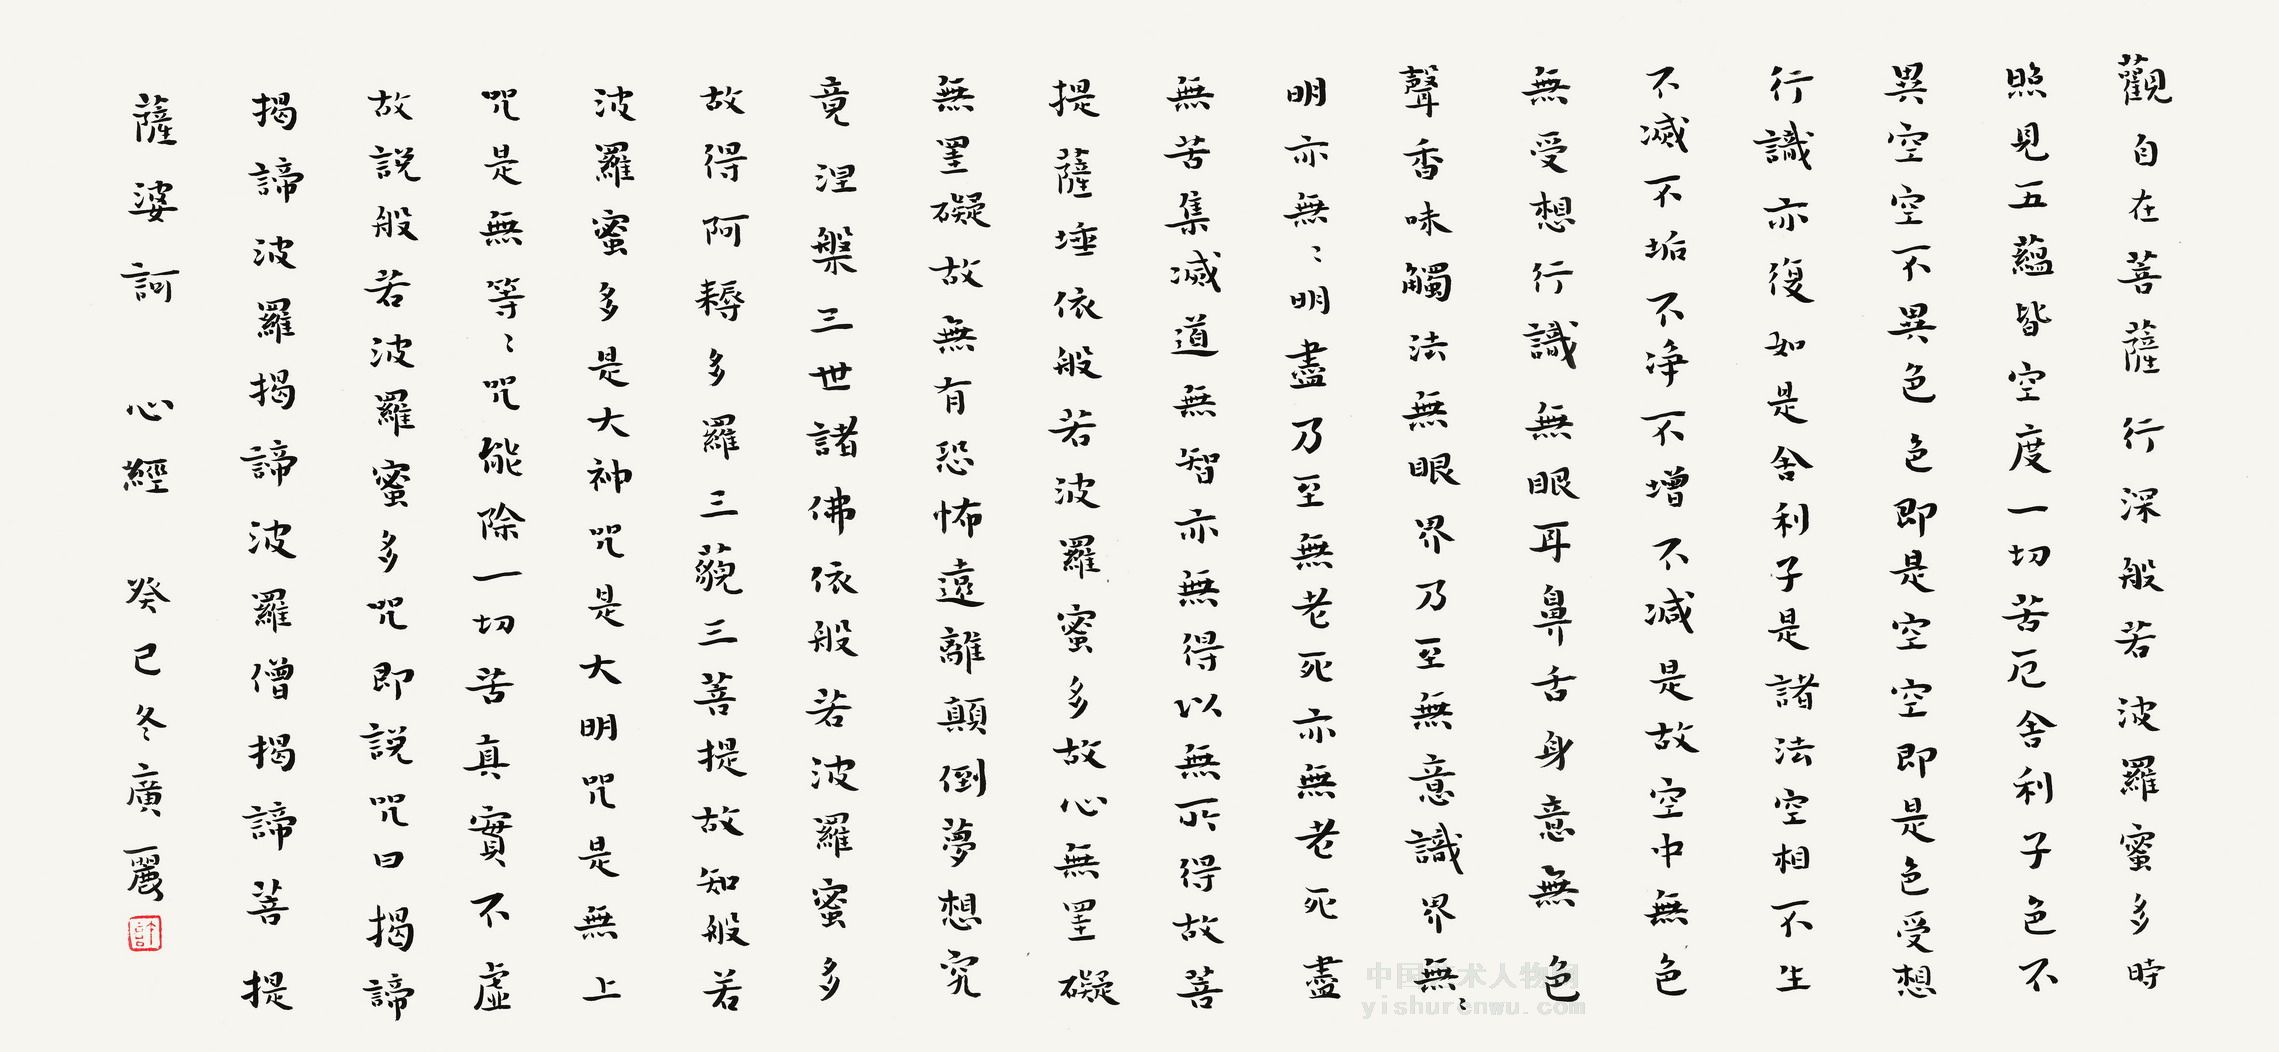 觀自在菩薩行深般若波羅蜜多時
照見五蘊皆空度一切苦厄舍利子色不
異空空不異色色即是空空即是色受想
行識亦復如是舍利子是諸法空相不生
不滅不垢不淨不增不減是故空中無色
無受想行識無眼耳鼻舌身意無色
聲香味觸法無眼界乃至無意識界無〻
明亦無〻明盡乃至無老死亦無老死盡
無苦集滅道無智亦無得以無所得故菩
提薩埵依般若波羅蜜多故心無罣礙
無罣礙故無有恐怖遠離顛倒夢想究
竟涅槃三世諸佛依般若波羅蜜多
故得阿耨多羅三藐三菩提故知般若
波羅蜜多是大神咒是大明咒是無上
咒是無等〻咒能除一切苦真實不虛
故說般若波羅蜜多咒即說咒曰揭諦
揭諦波羅揭諦波羅僧揭諦菩提
薩婆訶 心經 癸巳冬廣麗
中国艺术人物网
yishurenwu.com